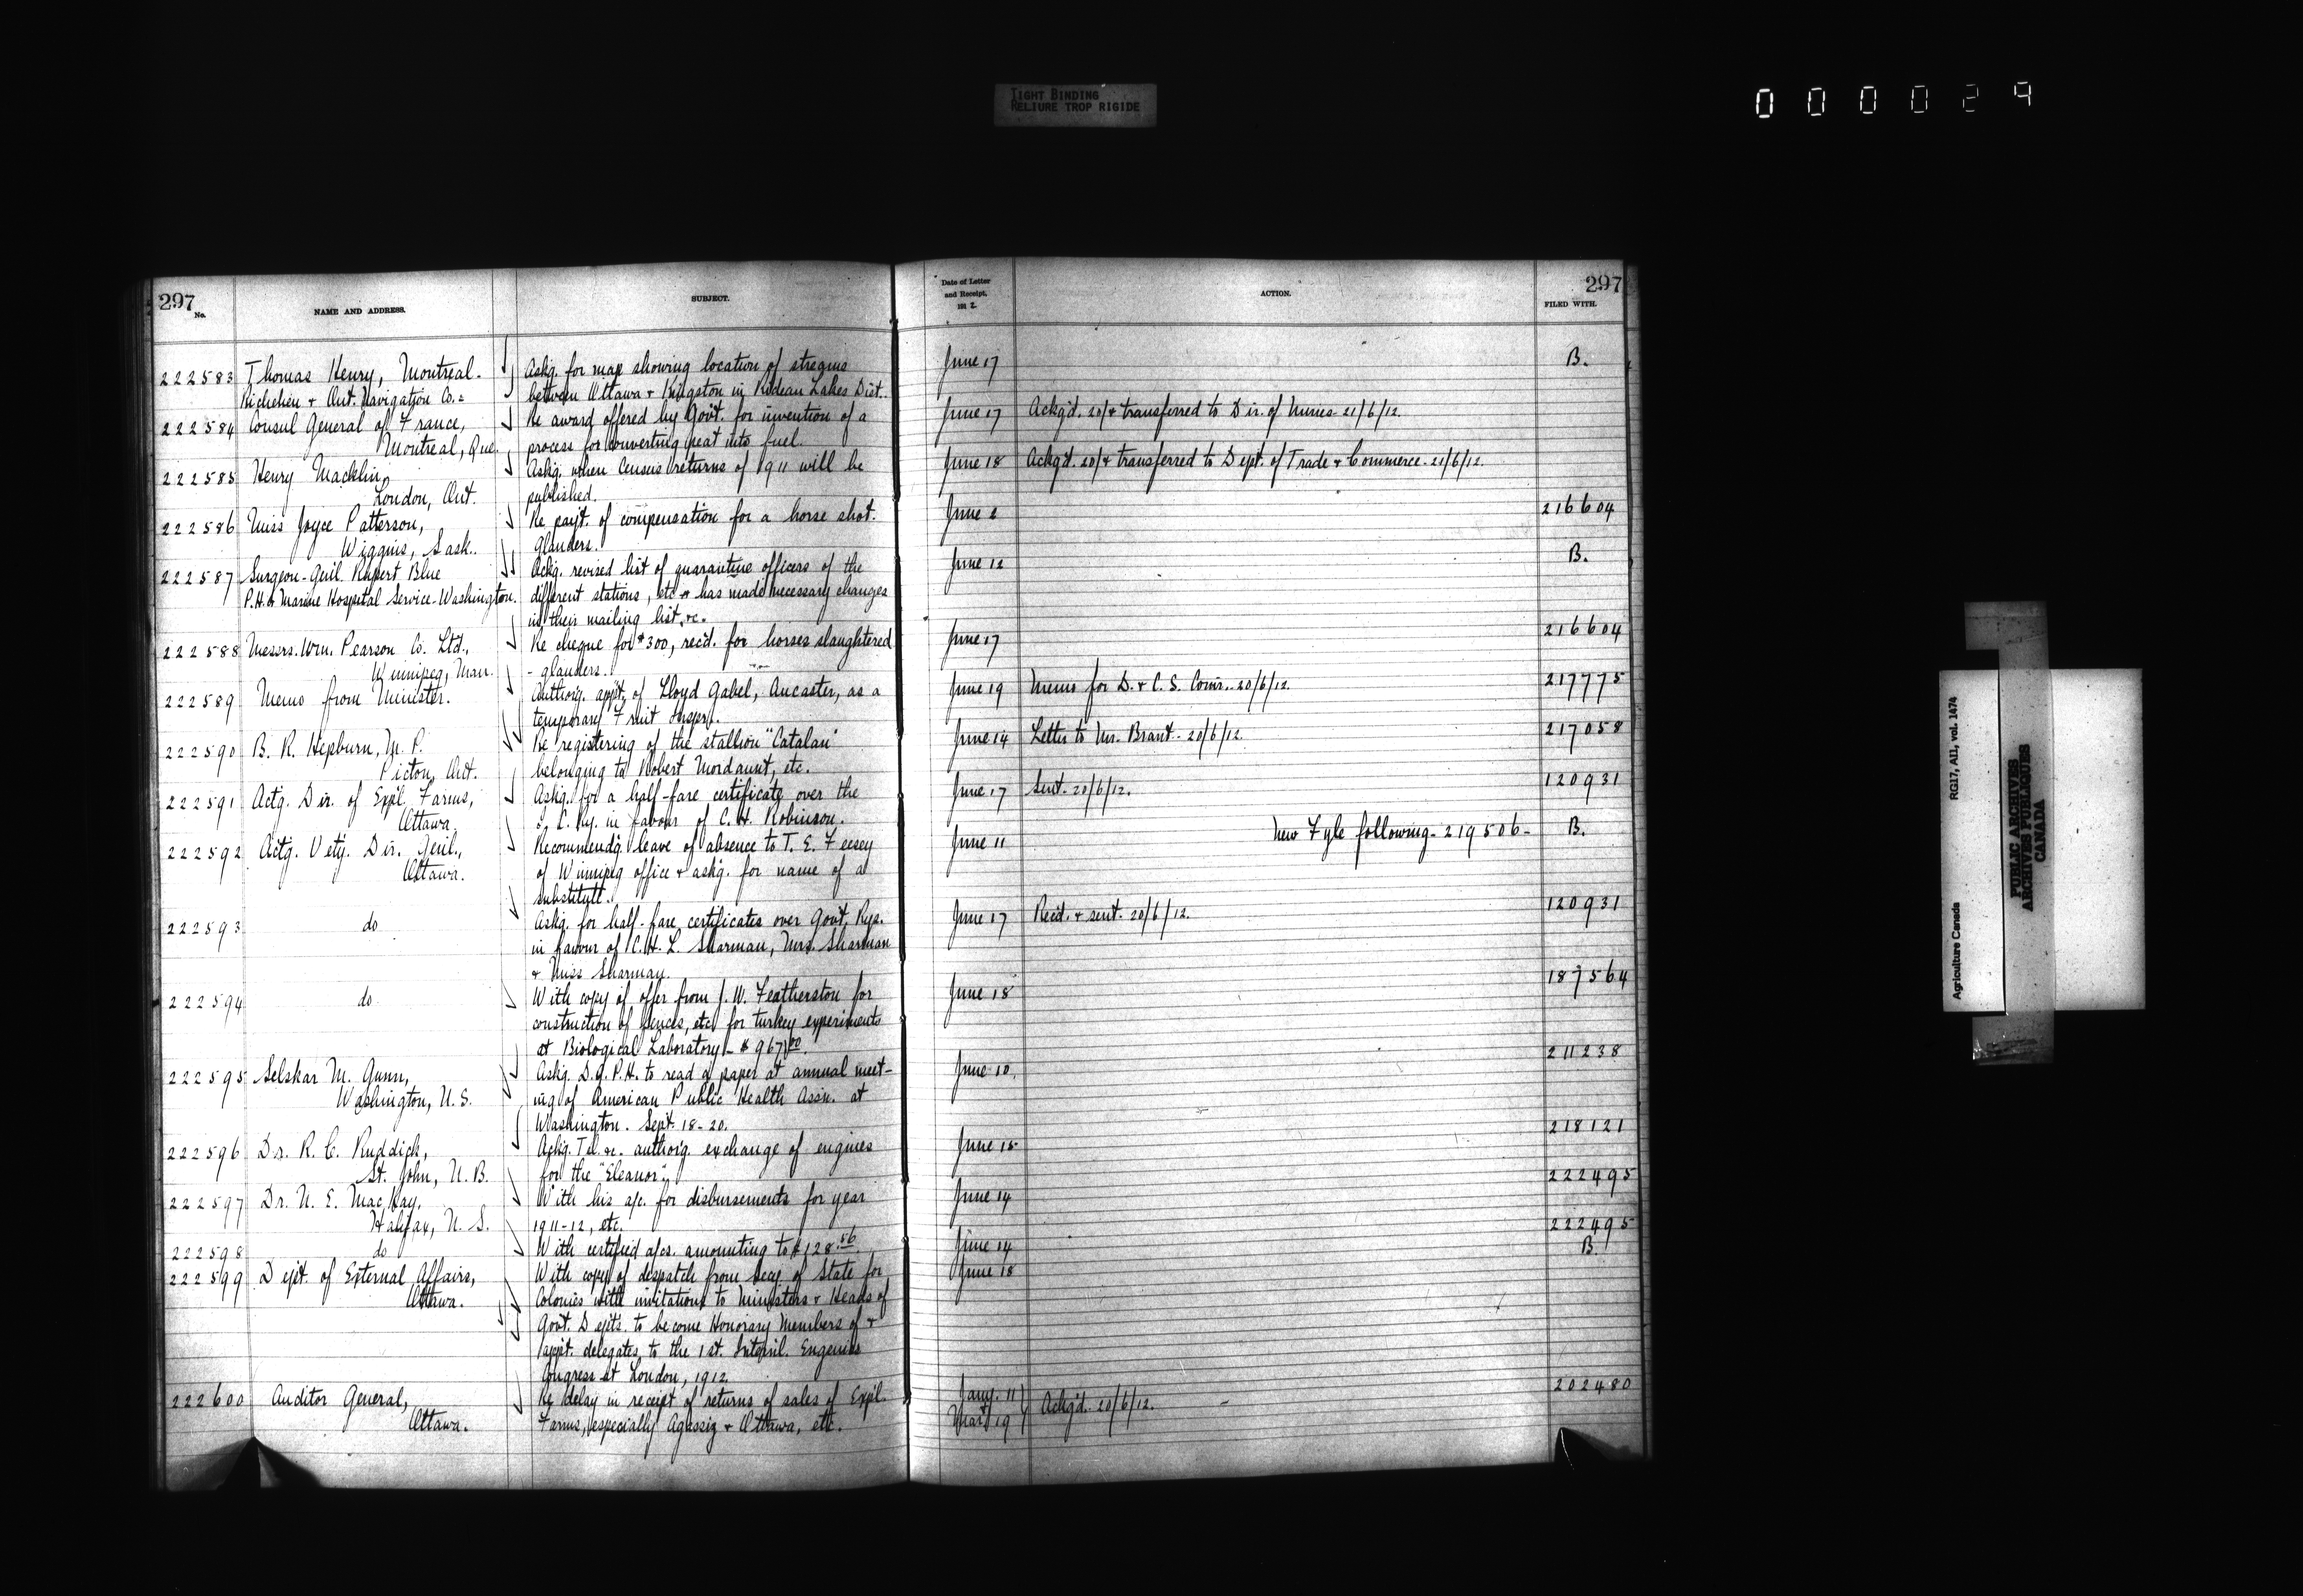 TIGHT BINDING
RELIURE TROP RIGIDE
000029
297
No.
NAME AND ADDRESS.
SUBJECT.
Date of Letter
and Receipt,
1912.
ACTION.
297
FILED WITH.
222583 Thomas Henry, Montreal. Askg. for map showing location of streams June 17 B.
Richelieu & Ont. Navigation Co. = between Ottawa & Kingston in Rideau Lakes Dist.
222584 Consul General of France, Re award offered by Gov't. for invention of a June 17 Ackg'd. 20/ & transferred to Dir. of Mines - 21/6/12.
Montreal, Que. process for converting peat into fuel.
222585 Henry Macklin, Askg. when Census returns of 1911 will be June 18 Ackg'd. 20/ & transferred to Dept. of Trade & Commerce - 21/6/12.
London, Ont. published.
222586 Miss Joyce Patterson, Re pay't. of compensation for a horse shot. June 216604
Wiggins, Sask. Glanders.
222587 Surgeon-Genl. Rupert Blue Ackg. revised list of quarantine officers of the June 12 B.
P.H. & Marine Hospital Service - Washington. different stations, etc & has made necessary changes
in their mailing list, &c.
222588 Messrs. Wm. Pearson Co. Ltd., Re cheque for $300, rec'd. for horses slaughtered June 17 216604
Winnipeg, Man. - glanders.
222589 Memo from Minister. Authorg. app't. of Lloyd Gabel, Ancaster, as a June 19 Memo for D. & C. S. Comr. - 20/6/12. 217775
temporary Fruit Inspr.
222590 B. R. Hepburn, M. P. Re registering of the stallion "Catalan" June 14 Letter to Mr. Brant - 20/6/12. 217058
Picton, Ont. belonging to Robert Mordaunt, etc.
222591 Actg. Dir. of Expl. Farms, Askg. for a half-fare certificate over the June 17 Sent. 20/6/12. 120931
Ottawa. C. Ry. in favour of C. H. Robinson.
222592 Actg. Vety. Dir. Genl., Recommendg. leave of absence to T. E. Feesey June 11 New Fyle following - 219506 - B.
Ottawa. of Winnipeg office & askg. for name of a
substitute.
222593 do Askg. for half-fare certificates over Gov't. Rys. June 17 Rec'd. & sent. 20/6/12. 120931
in favour of C. H. L. Sharman, Mrs. Sharman
& Miss Sharman.
222594 do With copy of offer from J. W. Featherston for June 18 187564
construction of fences, etc. for turkey experiments
at Biological Laboratory - $967.00.
222595 Selskar M. Gunn, Askg. D. G. P. H. to read a paper at annual meet- June 10. 211238
Washington, U.S. ing of American Public Health Assn. at
Washington. Sept. 18-20.
222596 Dr. R. C. Ruddick, Ackg. Tel. &c. authorg. exchange of engines June 15 218121
St. John, N. B. for the "Eleanor".
222597 Dr. N. E. MacKay, With his a/c. for disbursements for year June 14 222495
Halifax, N. S. 1911-12, etc.
222598 do With certified a/cs. amounting to $128.56. June 14 222495
222599 Dept. of External Affairs, With copy of despatch from Secy. of State for June 18 B.
Ottawa. Colonies with invitations to Ministers & Heads of
Gov't. Dep'ts. to become Honorary Members of &
app't. delegates to the 1st. Internl. Eugenics
Congress at London, 1912.
222600 Auditor General, Re delay in receipt of returns of sales of Expl. Jany. 11 Ackg'd. 20/6/12. 202480
Ottawa. Farms, especially Agassiz & Ottawa, etc. Mar. 19
Agriculture Canada RG17, AII, vol. 1474
PUBLIC ARCHIVES
ARCHIVES PUBLIQUES
CANADA